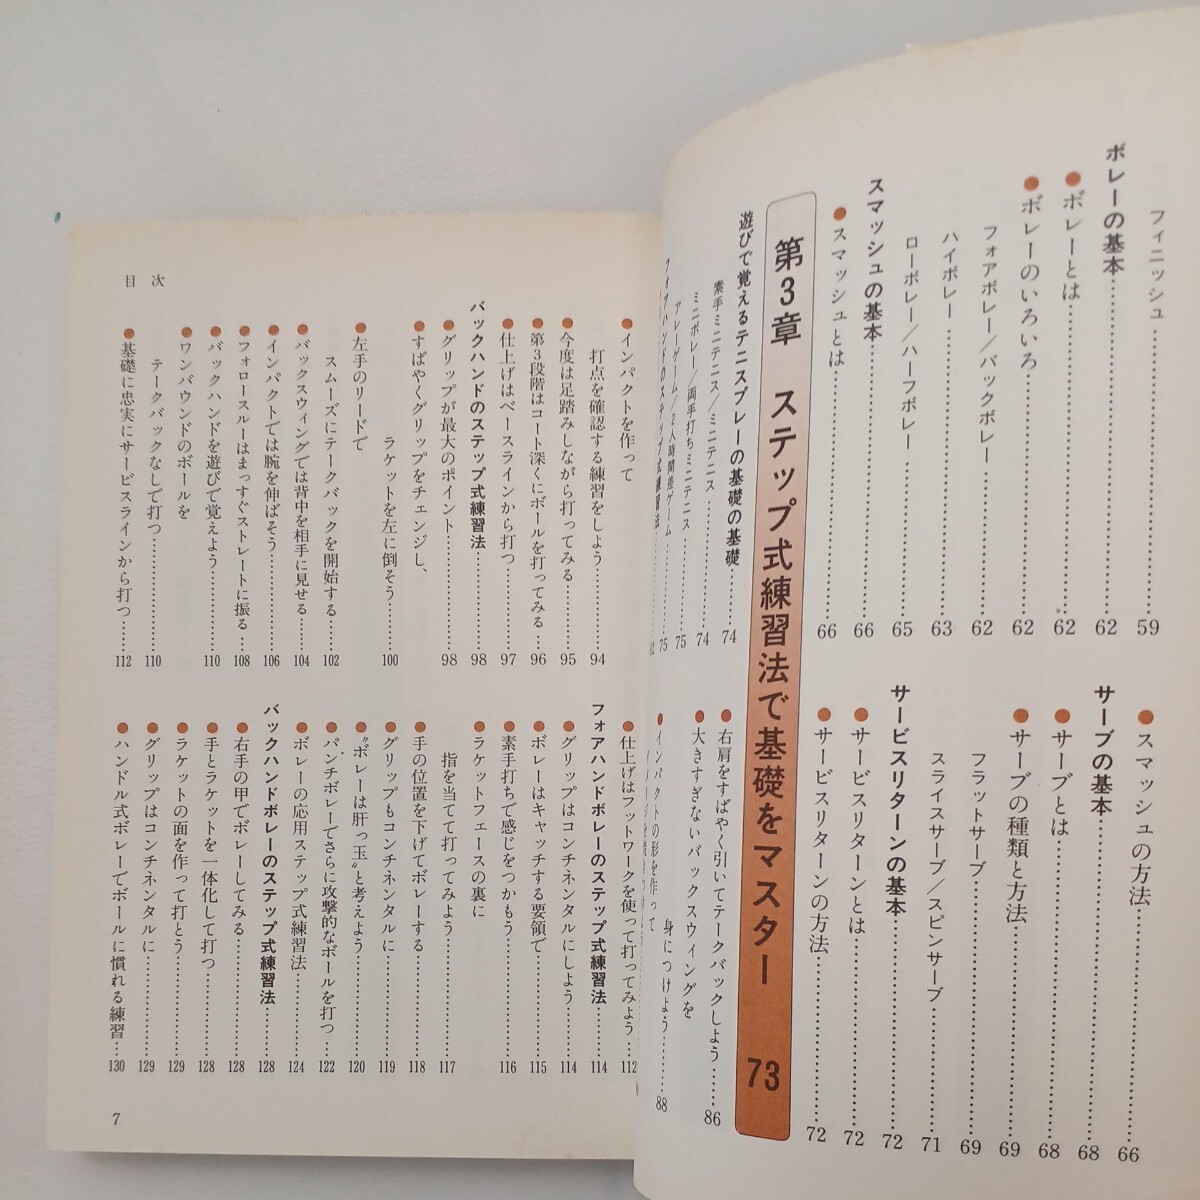 フィニッシュ……59
ボレーの基本……62
●ボレーとは……62
●ボレーのいろいろ……62
フォアボレー／バックボレー……62
ハイボレー……63
ローボレー／ハーフボレー……65
スマッシュの基本……66
●スマッシュとは……66
●スマッシュの方法……66
サーブの基本……68
●サーブとは……68
●サーブの種類と方法……69
フラットサーブ……69
スライスサーブ／スピンサーブ……71
サービスリターンの基本……72
●サービスリターンとは……72
●サービスリターンの方法……72
第3章 ステップ式練習法で基礎をマスター 73
遊びで覚えるテニスプレーの基礎の基礎……74
素手ミニテニス／ミニテニス……74
ミニボレー／両手打ちミニテニス……75
アレーゲーム／2人時間差ゲーム……75
フォアハンドのステップ式練習法
●右肩をすばやく引いてテークバックしよう……86
●大きすぎないバックスウィングを
身につけよう……88
●インパクトの形を作って
目次
●インパクトを作って
打点を確認する練習をしよう……94
●今度は足踏みしながら打ってみる……95
●第3段階はコート深くにボールを打ってみる……96
●仕上げはベースラインから打つ……97
バックハンドのステップ式練習法……98
●グリップが最大のポイント……98
●すばやくグリップをチェンジし、
ラケットを左に倒そう……100
●左手のリードで
スムーズにテークバックを開始する……102
●バックスウィングでは背中を相手に見せる……104
●インパクトでは腕を伸ばそう……106
●フォロースルーはまっすぐストレートに振る……108
●バックハンドを遊びで覚えよう……110
●ワンバウンドのボールを
テークバックなしで打つ……110
●基礎に忠実にサービスラインから打つ……112
●仕上げはフットワークを使って打ってみよう……112
フォアハンドボレーのステップ式練習法……114
●グリップはコンチネンタルにしよう……114
●ボレーはキャッチする要領で……115
●素手打ちで感じをつかもう……116
●ラケットフェースの裏に
指を当てて打ってみよう……117
●手の位置を下げてボレーする……118
●グリップもコンチネンタルに……119
●〝ボレーは肝っ玉〟と考えよう……120
●パンチボレーでさらに攻撃的なボールを打つ……122
●ボレーの応用ステップ式練習法……124
バックハンドボレーのステップ式練習法……128
●右手の甲でボレーしてみる……128
●手とラケットを一体化して打つ……128
●ラケットの面を作って打とう……129
●グリップはコンチネンタルに……129
●ハンドル式ボレーでボールに慣れる練習……130
7